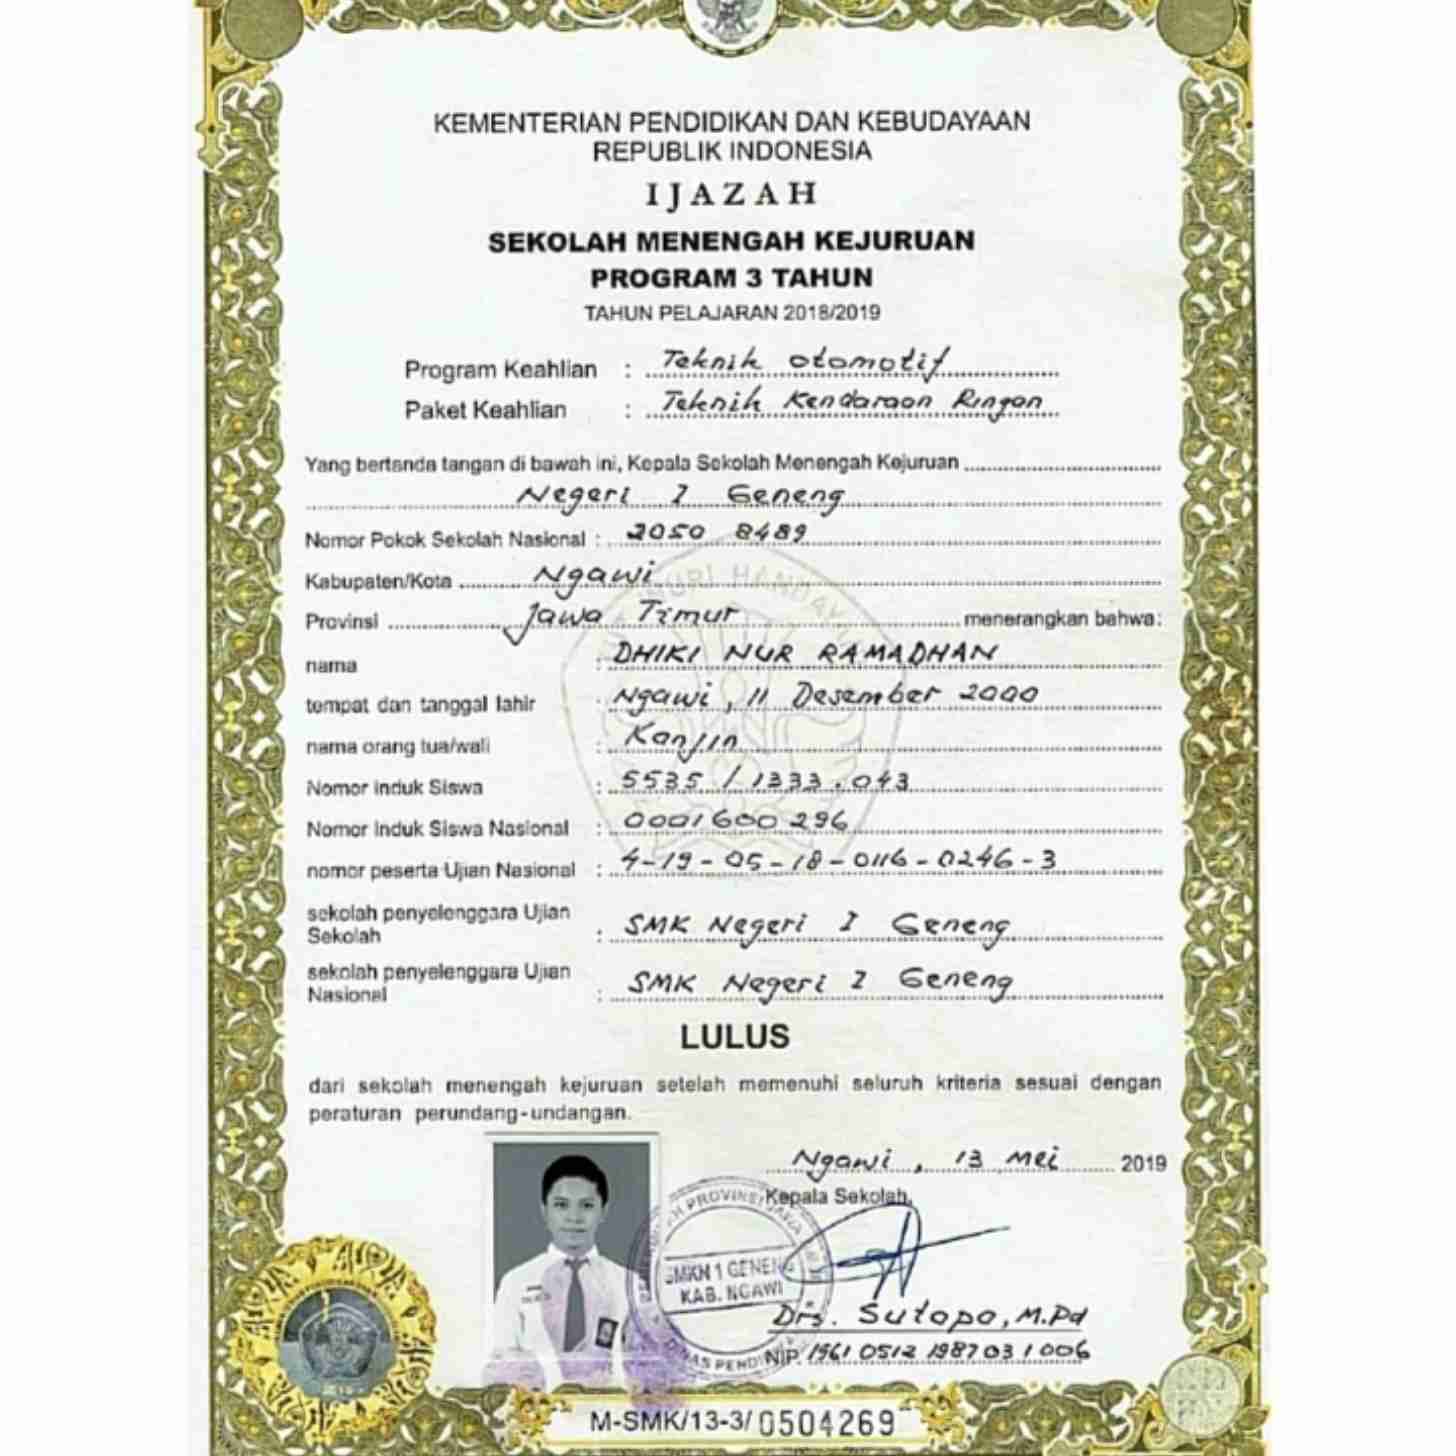 KEMENTERIAN PENDIDIKAN DAN KEBUDAYAAN
REPUBLIK INDONESIA
IJAZAH
SEKOLAH MENENGAH KEJURUAN
PROGRAM 3 TAHUN
TAHUN PELAJARAN 2018/2019
Program Keahlian : Teknik Otomotif
Paket Keahlian : Teknik Kendaraan Ringan
Yang bertanda tangan di bawah ini, Kepala Sekolah Menengah Kejuruan
Negeri 1 Geneng
Nomor Pokok Sekolah Nasional : 2050 8489
Kabupaten/Kota Ngawi
Provinsi Jawa Timur menerangkan bahwa:
nama : DHIKI NUR RAMADHAN
tempat dan tanggal lahir : Ngawi, 11 Desember 2000
nama orang tua/wali : Kanjin
Nomor Induk Siswa : 5535 / 1333.043
Nomor Induk Siswa Nasional : 0001600296
nomor peserta Ujian Nasional : 4-19-05-18-0116-0246-3
sekolah penyelenggara Ujian
Sekolah : SMK Negeri 1 Geneng
sekolah penyelenggara Ujian
Nasional : SMK Negeri 1 Geneng
LULUS
dari sekolah menengah kejuruan setelah memenuhi seluruh kriteria sesuai dengan
peraturan perundang-undangan.
Ngawi, 13 Mei 2019
Kepala Sekolah,
SMKN 1 GENENG
KAB. NGAWI
Drs. Sutopo, M.Pd
NIP. 19610512 198703 1 006
M-SMK/13-3/0504269